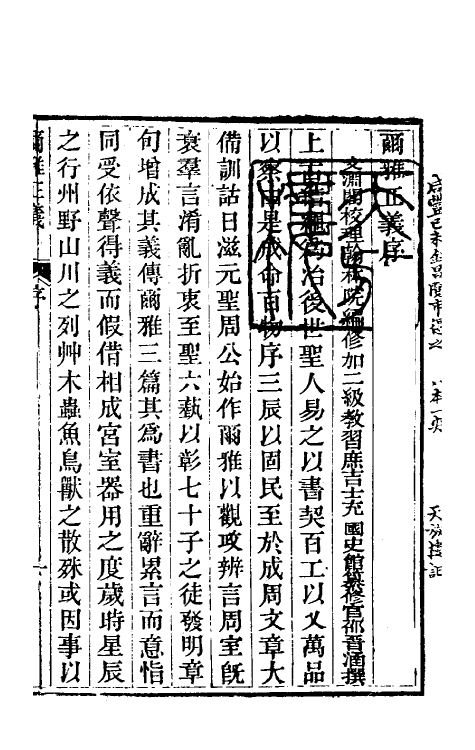 爾雅正義序
文淵閣校理翰林院編修加二級教習庶吉士充 國史館纂修官邵晉涵撰
上古結繩為治後世聖人易之以書契百工以乂萬品
以察由是成命百物序三辰以固民至於成周文章大
備訓詁日滋元聖周公始作爾雅以觀政辨言周室旣
衰羣言淆亂折衷至聖六藝以彰七十子之徒發明章
句增成其義傳爾雅三篇其為書也重辭累言而意恉
同受依聲得義而假借相成宮室器用之度歲時星辰
之行州野山川之列艸木蟲魚鳥獸之散殊或因事以
爾雅正義 序 一